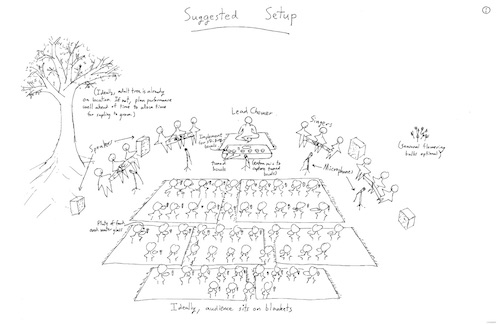 Suggested Setup
2
(Ideally, adult tree is already
on location. If not, plan performance
well ahead of time to allow time
for sapling to grow.)
Lead Chewer
Singers
Speakers
tuned
bowls
(seasonal flowering
bulbs optional)
Microphones
Plate of food
and water glass
Ideally, audience sits on blankets